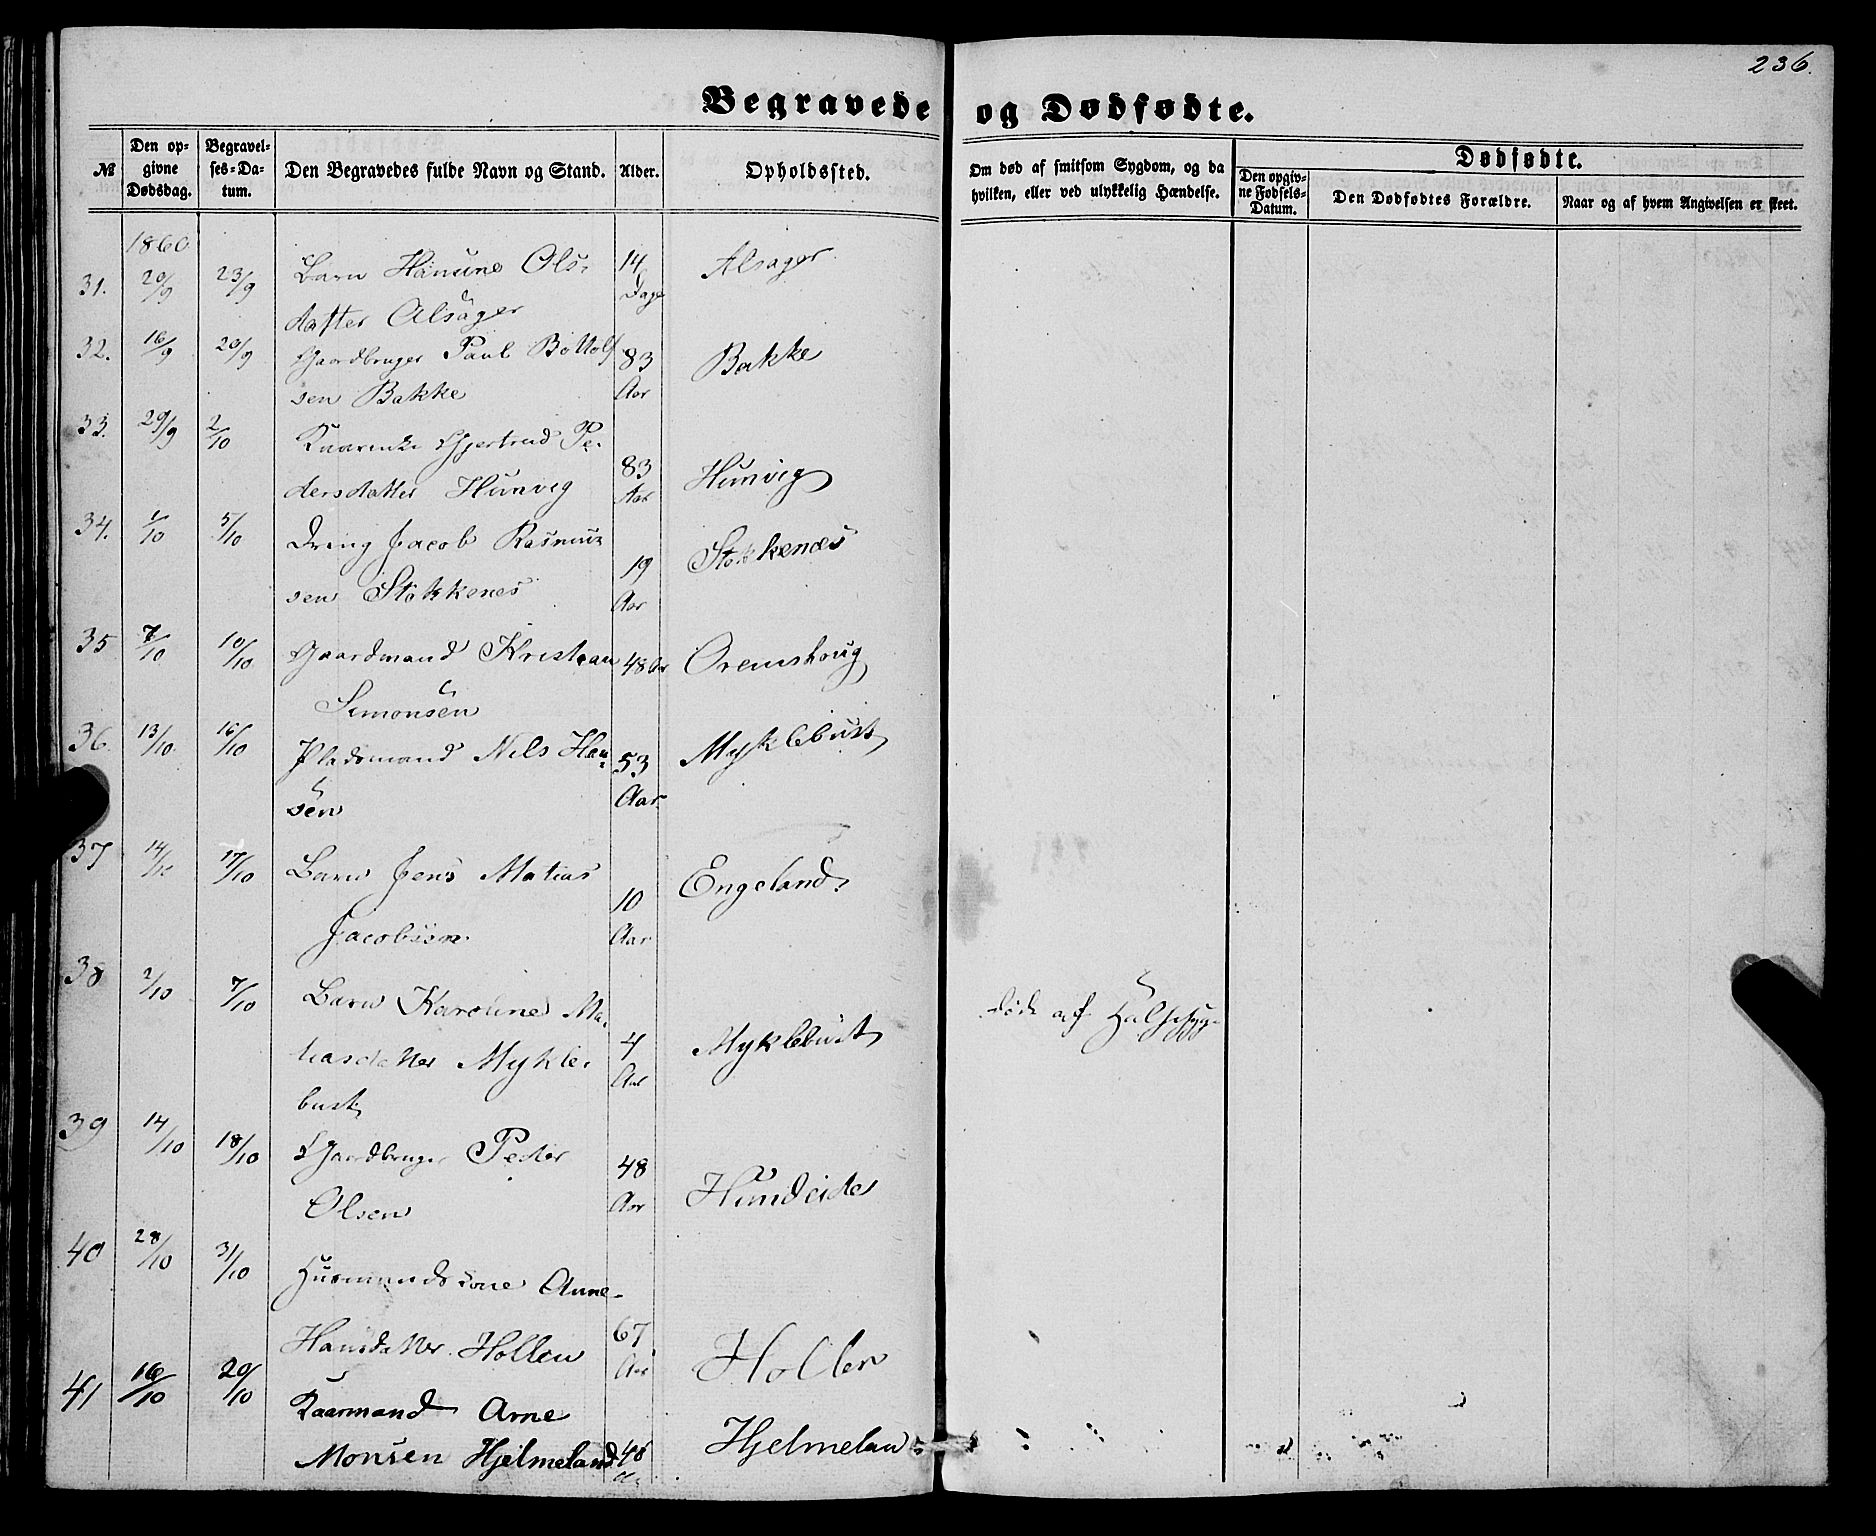 236.
Begravede og Dødfødte.
№
Den opgivne Dødsdag.
Begravelses-Datum.
Den Begravedes fulde Navn og Stand.
Alder.
Opholdssted.
Om død af smitsom Sygdom, og da hvilken, eller ved ulykkelig Hændelse.
Dødfødte.
Den opgivne Fødsels-Datum.
Den Dødfødtes Forældre.
Naar og af hvem Angivelsen er skeet.
1860
31. 20/9 23/9 Barn Hansine Ols- 14 Alsager
datter Alsager Dage
32. 16/9 20/9 Gaardbruger Paul Bottolf 83 Bakke
sen Bakke Aar
33. 29/9 2/10 Gjertrud Pe-
dersdatter Hunveg 83 Aar Hunveg
34. 1/10 5/10 Dreng Jacob Rasmus
sen Stokkenes 19 Aar Stokkenes
35 7/10 10/10 Gaardmand Kristian 48 Aar Oremshoug
Simonsen
36. 13/10 16/10 Pladsmand Nils Han- 53 Myklebust
sen Aar
37 14/10 17/10 Barn Jens Matias 10 Engeland
Jacobsen Aar
38 2/10 7/10 Barn Karoline Ma-
tiasdatter Mykle- 4 Aar Myklebust død af Halsesyge
bust
39 14/10 18/10 Gaardbruger Peder 48 Hundeide
Olsen Aar
40 28/10 31/10 Husmandskone Anne
Hansdatter Hollen 67 Aar Hollen
41 16/10 20/10 Kaarmand Arne
Monsen Hjelmeland 46 Hjelmelan